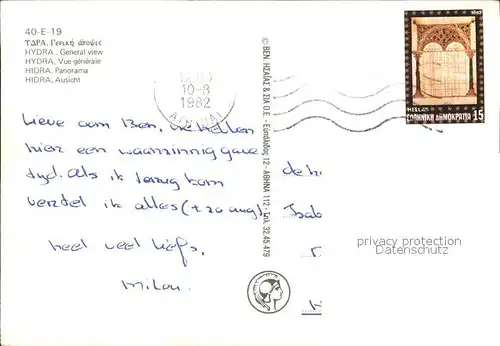 40-E-19
ΥΔΡΑ. Γενική άποψις
HYDRA. General view
HYDRA. Vue générale
HIDRA. Panorama
HIDRA. Ausicht
10-8
1982
1982
HELLAS
ΕΛΛΗΝΙΚΗ ΔΗΜΟΚΡΑΤΙΑ 15
© ΒΕΝ. ΗΣΑΪΑΣ & ΣΙΑ Ο.Ε. - Ευπόλιδος 12 - ΑΘΗΝΑ 112 - Τηλ. 32.45.479
Lieve oom Ben, we hebben
hier een waanzinnig gave
tyd. Als ik terug kom
vertel ik alles (± 20 aug).
heel veel liefs,
Milou.
de h
Isab
privacy protection
Datenschutz